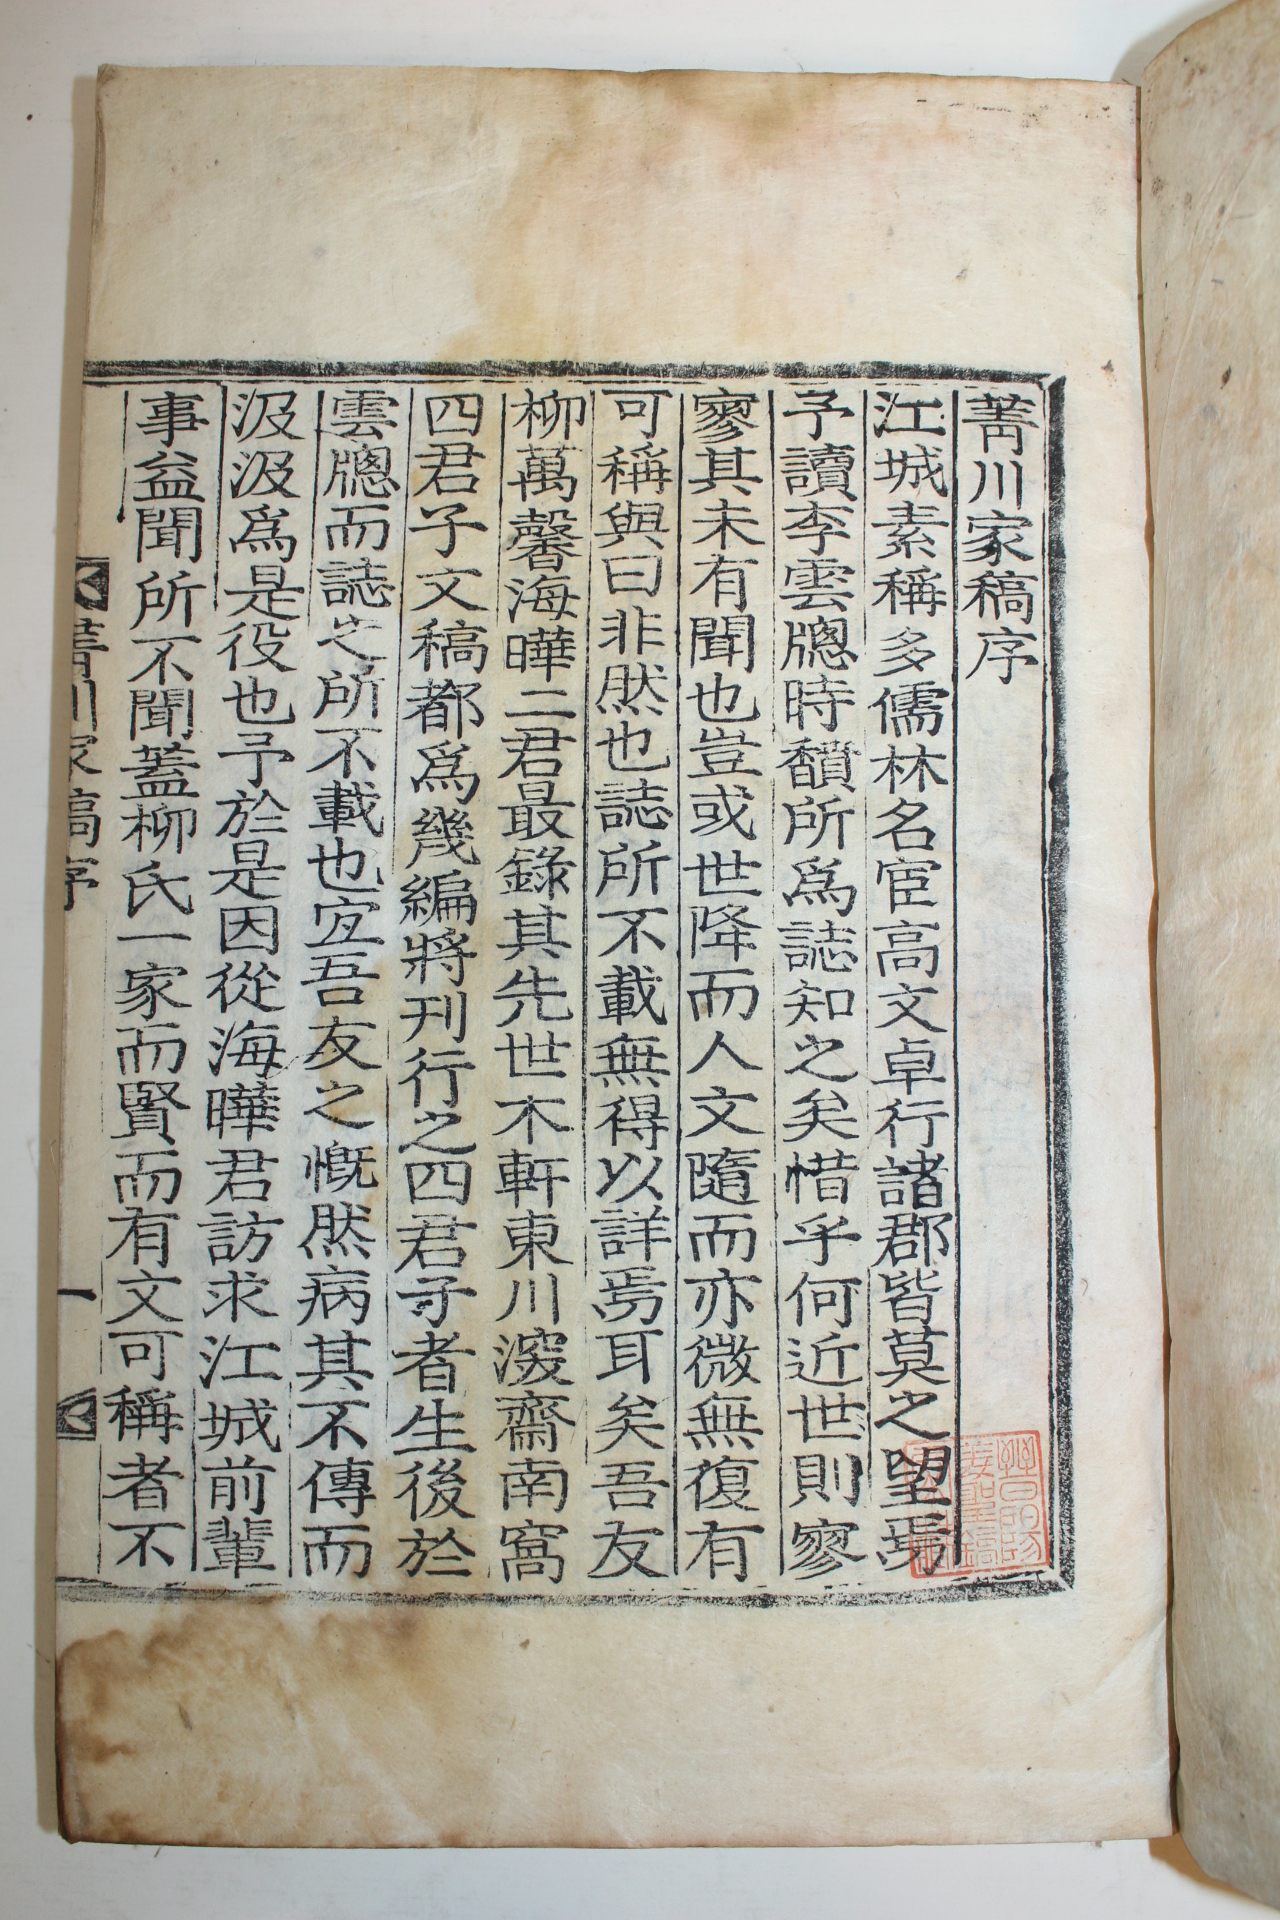 菁川家稿序
江城素稱多儒林名宦高文卓行諸郡皆莫之望焉
予讀李雲牕時馪所爲誌知之矣惜乎何近世則寥
寥其未有聞也豈或世降而人文隨而亦微無復有
可稱與曰非然也誌所不載無得以詳焉耳矣吾友
柳萬馨海曄二君最錄其先世木軒東川濅齋南窩
四君子文稿都爲幾編將刊行之四君子者生後於
雲牕而誌之所不載也宐吾友之慨然病其不傳而
汲汲爲是役也予於是因從海曄君訪求江城前輩
事益聞所不聞蓋柳氏一家而賢而有文可稱者不
菁川家稿序
一